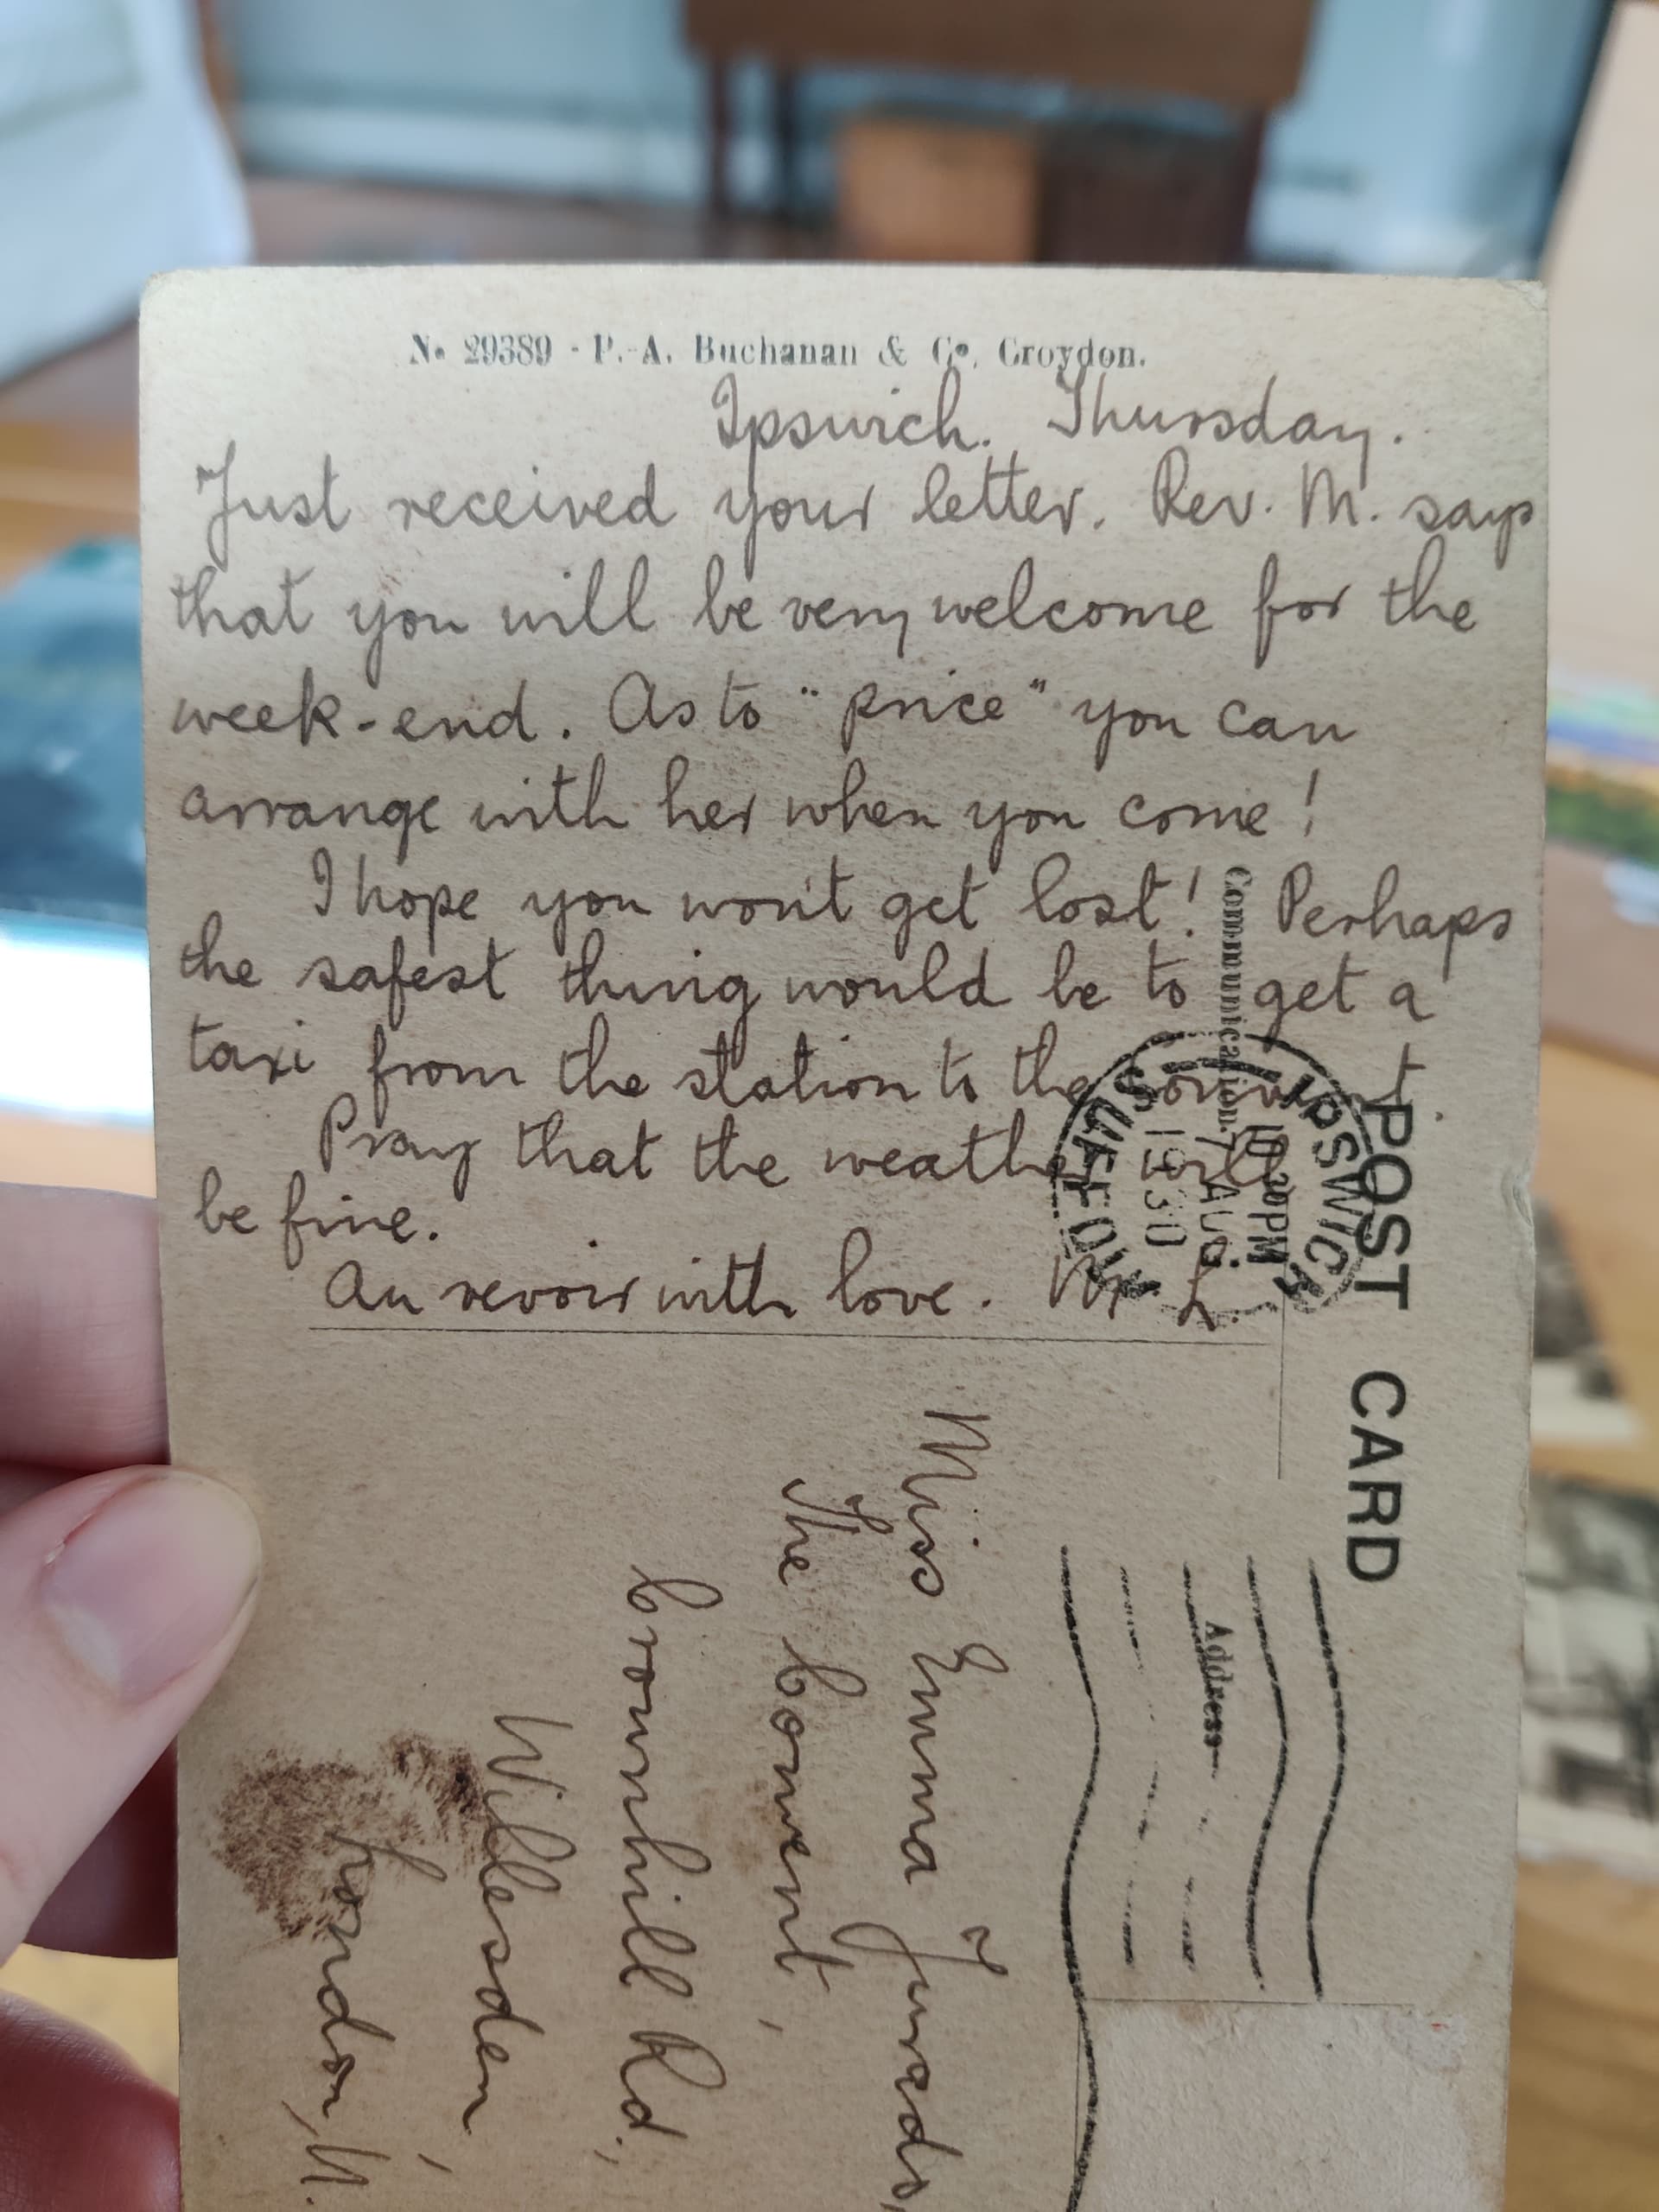 No 29389 - P.-A. Buchanan & Co, Croydon.
Ipswich. Thursday.
Just received your letter. Rev. M. says
that you will be very welcome for the
week-end. As to "price" you can
arrange with her when you come!
I hope you won't get lost! Perhaps
the safest thing would be to get a
taxi from the station to the convent.
Pray that the weather will
be fine.
Au revoir with love. M L.
Communication.
POST CARD
Address
IPSWICH
10.30 PM
7 AUG
1930
SUFFOLK
Miss Emma Jurado,
The Convent,
Crownhill Rd.,
Willesden,
London, N.